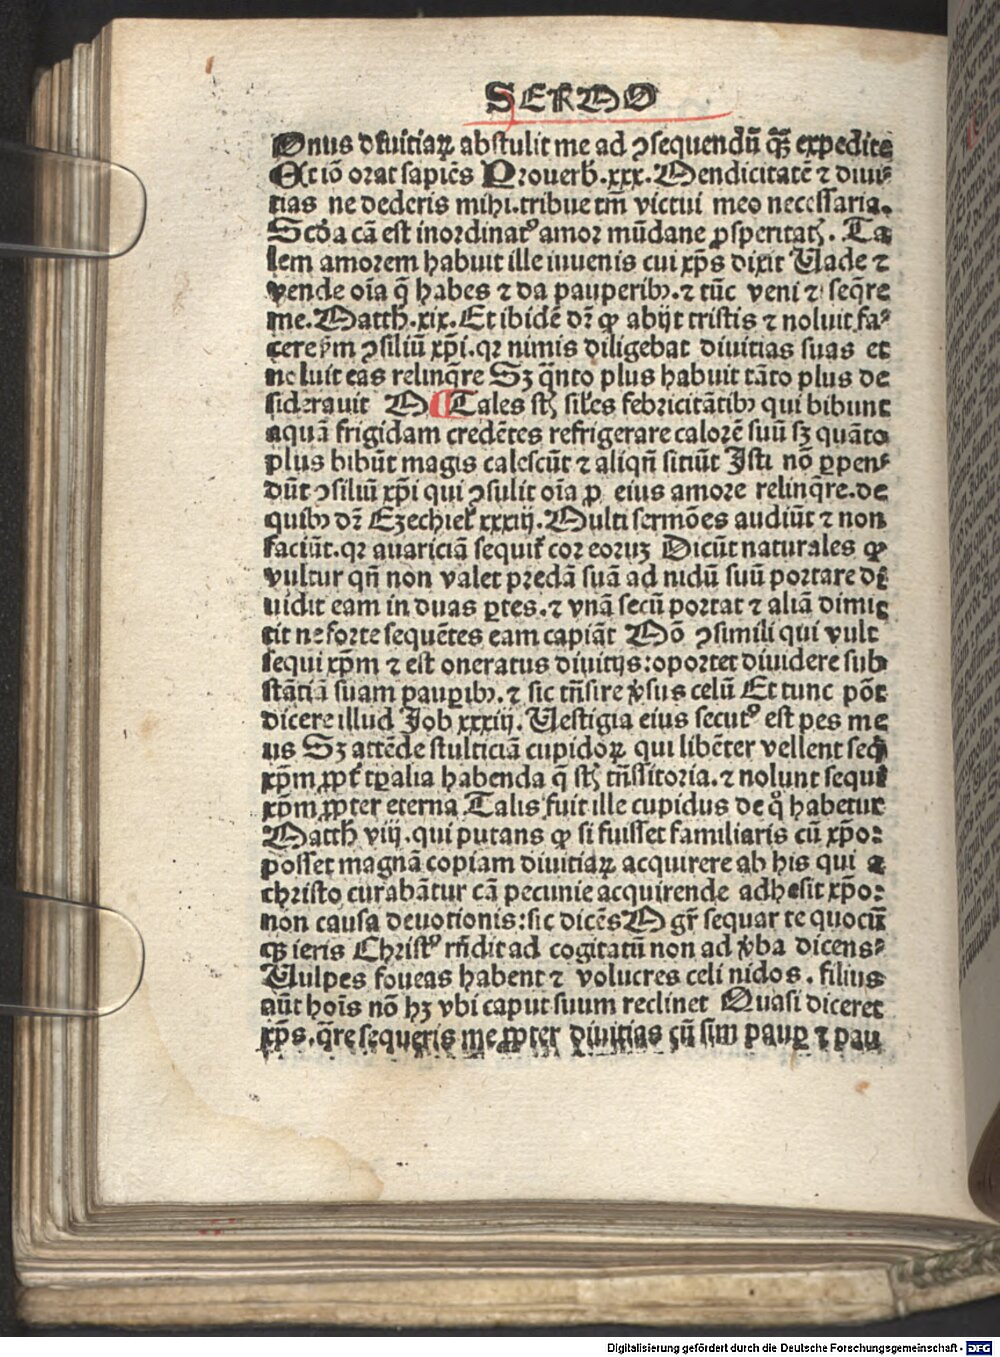 SERMO
Onus diuitiaꝝ abstulit me ad ꝯsequendū qꝫ̄ expedite
Et iō orat sapiēs Prouerb̄.xxx. Mendicitatē ⁊ diui⸗
tias ne dederis mihi.tribue tm̄ victui meo necessaria.
Scd̓a cā est inordinatꝰ amor mūdane ꝓsperitatꝭ. Ta
lem amorem habuit ille iuuenis cui xp̄s dixit Uade ⁊
vende oīa q̄ habes ⁊ da pauperibꝰ.⁊ tūc veni ⁊ seq̄re
me.Matth̄.xix.Et ibidē dr̄ ꝙ abijt tristis ⁊ noluit fa⸗
cere ẜm ꝯsiliū xp̄i.qꝛ nimis diligebat diuitias suas et
noluit eas relinq̄re Sꝫ q̄nto plus habuit tāto plus de
siderauit O Tales st̄ sil̄es febricitātibꝰ qui bibunt
aquā frigidam credētes refrigerare calorē suū sꝫ quāto
plus bibūt magis calescūt ⁊ aliqn̄ sitiūt Isti nō ꝑpen⸗
dūt ꝯsiliū xp̄i qui ꝯsulit oīa ꝓ eius amore relinq̄re.de
quibꝰ dr̄ Ezechiel̄ xxxiij.Multi sermōes audiūt ⁊ non
faciūt.qꝛ auariciā sequit̄ cor eoruꝫ Dicūt naturales ꝙ
vultur qn̄ non valet predā suā ad nidū suū portare di
uidit eam in duas ꝑtes.⁊ vnā secū portat ⁊ aliā dimit
tit ne forte sequētes eam capiāt Mō ꝯsimili qui vult
sequi xp̄m ⁊ est oneratus diuitijs:oportet diuidere sub
stātiā suam pauꝑibꝰ.⁊ sic trn̄sire ṽsus celū Et tunc pōt
dicere illud Job xxxiij.Uestigia eius secutꝰ est pes me
us Sꝫ attēde stulticiā cupidoꝝ qui libēter vellent seq̄
xp̄m ꝓpt̄ tꝑalia habenda q̄ st̄ trn̄sitoria.⁊ nolunt sequi
xp̄m ꝓpter eterna Talis fuit ille cupidus de q̊ habetur
Matth̄ viij.qui putans ꝙ si fuisset familiaris cū xp̄o:
posset magnā copiam diuitiaꝝ acquirere ab his qui a
christo curabātur cā pecunie acquirende adhesit xp̄o:
non causa deuotionis:sic dicēs Mgr̄ sequar te quocū
qꝫ ieris Christꝰ rn̄dit ad cogitatū non ad ṽba dicens⸗
Uulpes foueas habent ⁊ volucres celi nidos. filius
aūt hoīs nō hꝫ vbi caput suum reclinet Quasi diceret
xp̄s.q̄re sequeris me ꝓpter diuitias cū sim pauꝑ ⁊ pau
Digitalisierung gefördert durch die Deutsche Forschungsgemeinschaft - DFG